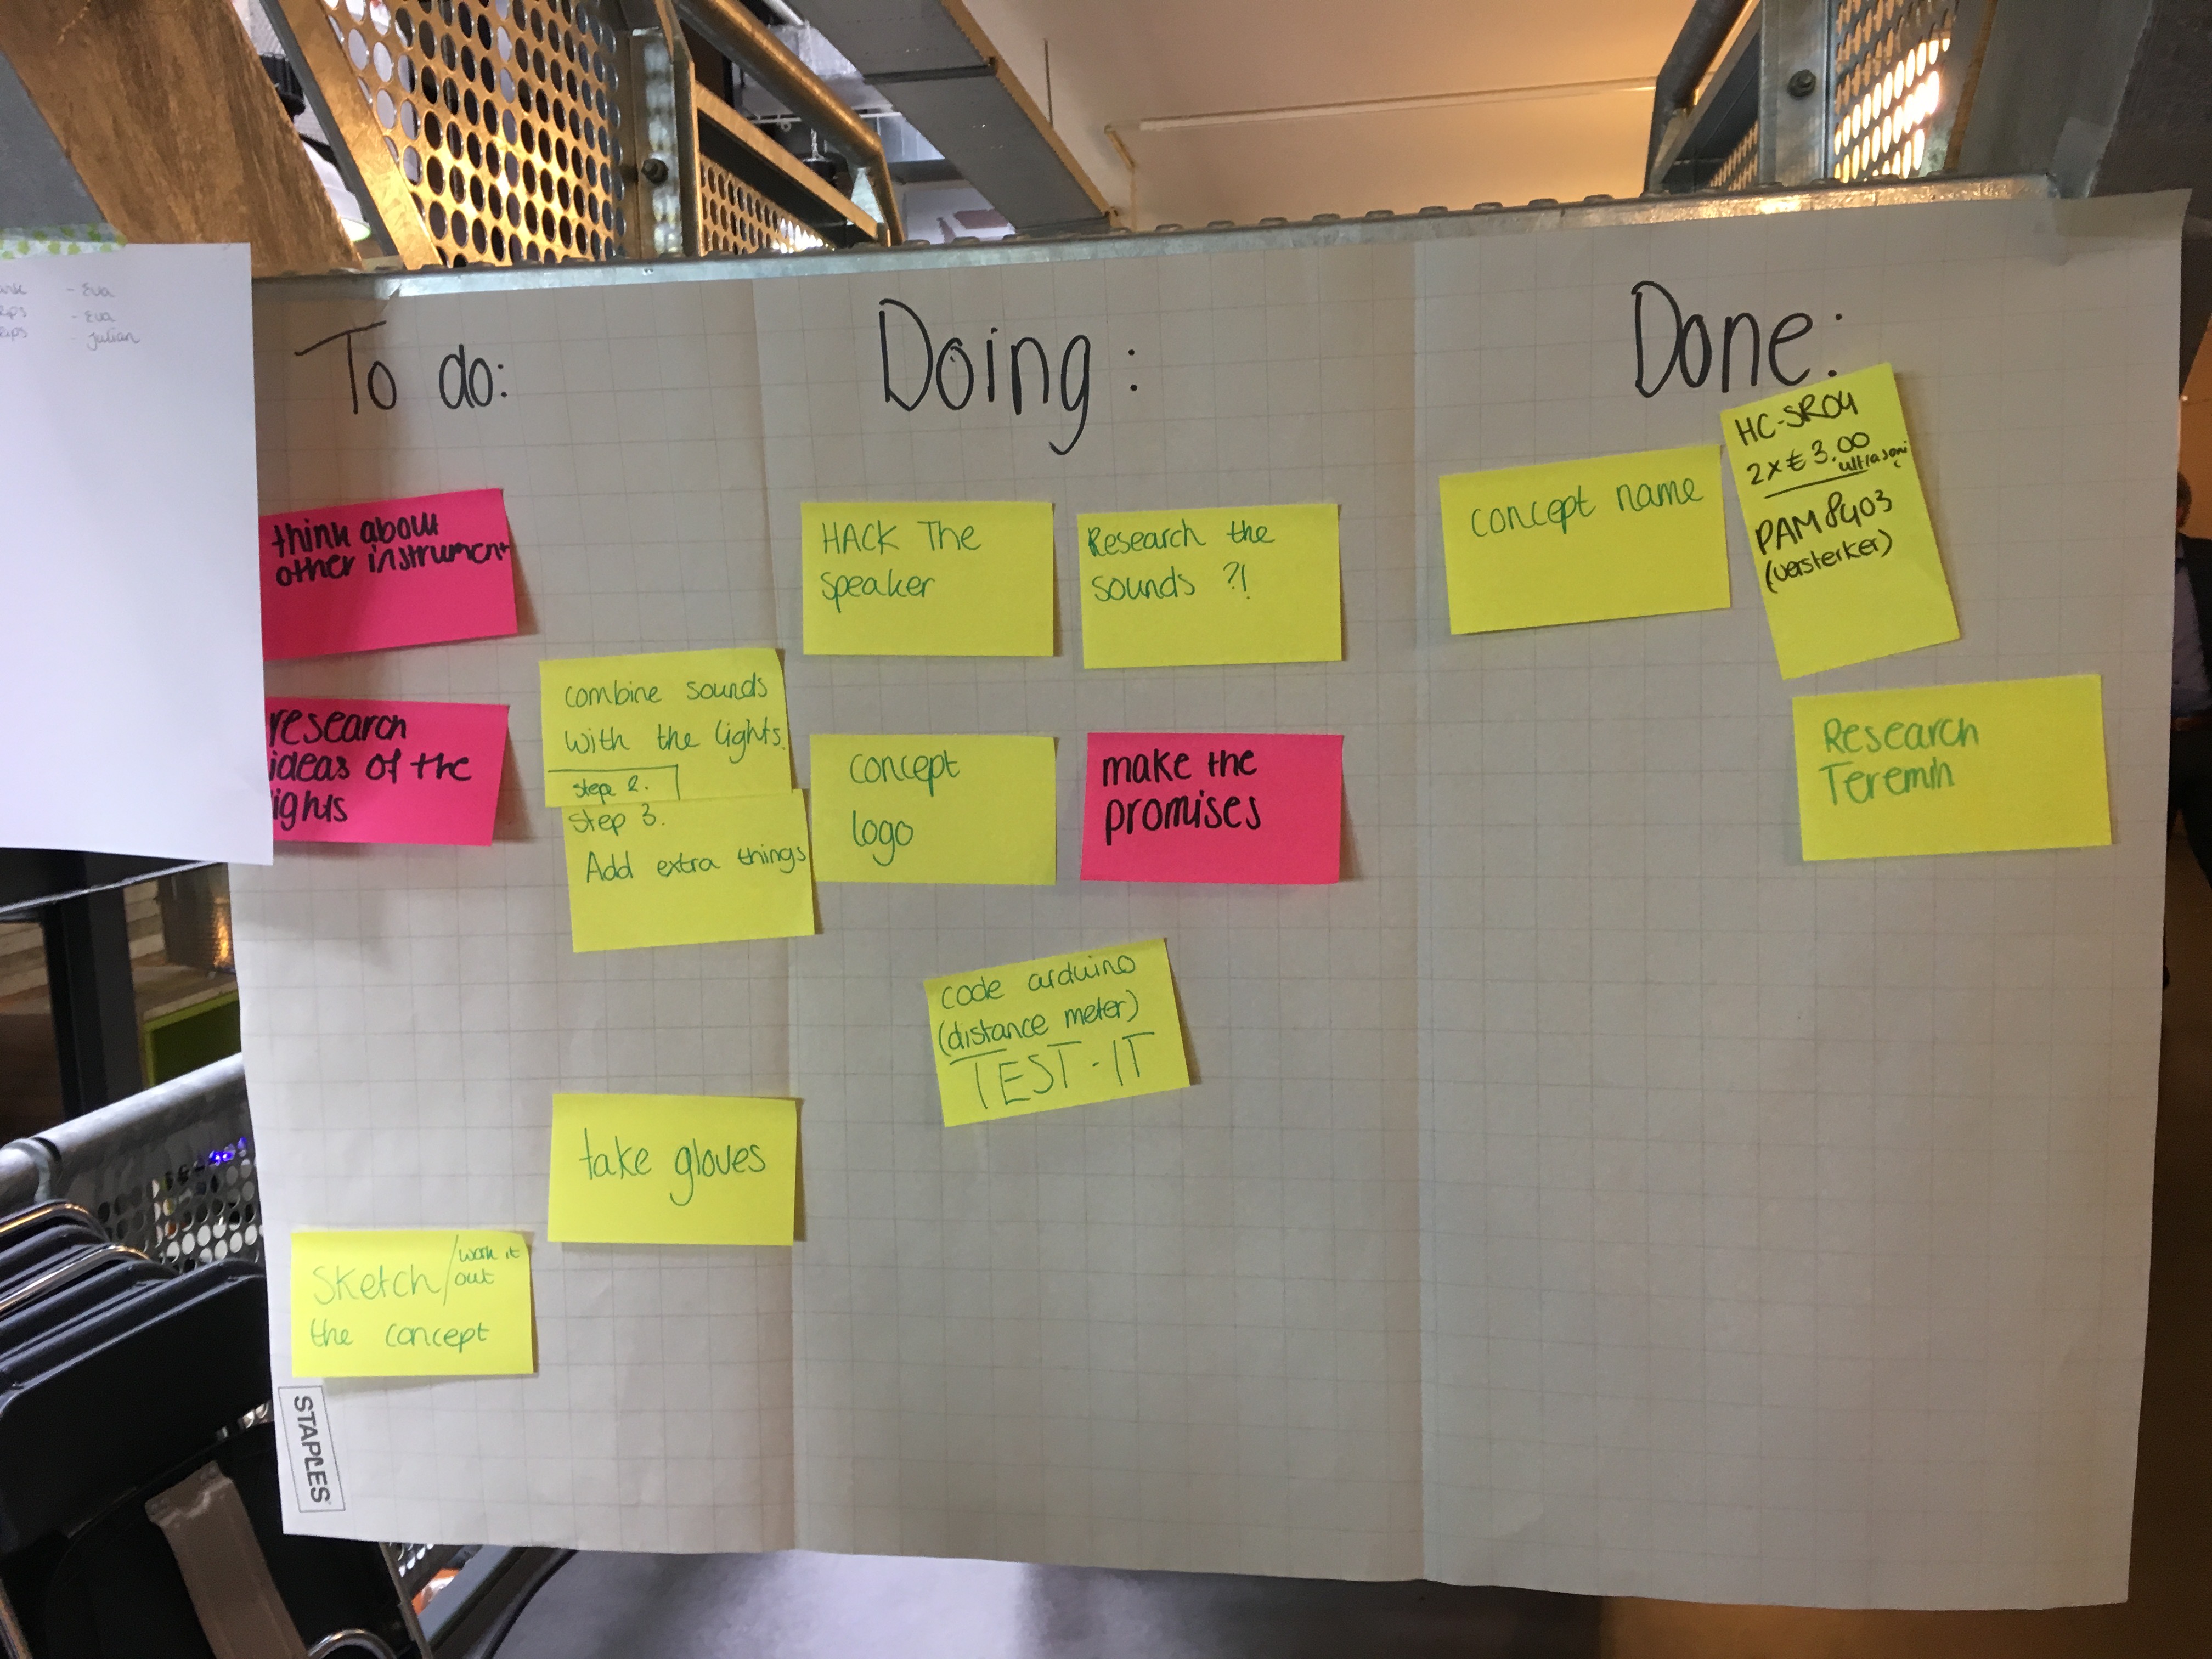 - Eva
- Eva
- Julian
To do:
think about
other instrument
research
ideas of the
ights
combine sounds
with the lights.
step 2.
Step 3.
Add extra things
take gloves
Sketch/work it
out
the concept
STAPLES
Doing:
HACK The
speaker
Research the
sounds ?!
concept
logo
make the
promises
code arduino
(distance meter)
TEST-IT
Done:
concept name
HC-SR04
2x€3.00
PAM8403
(versterker)
Research
Teremin